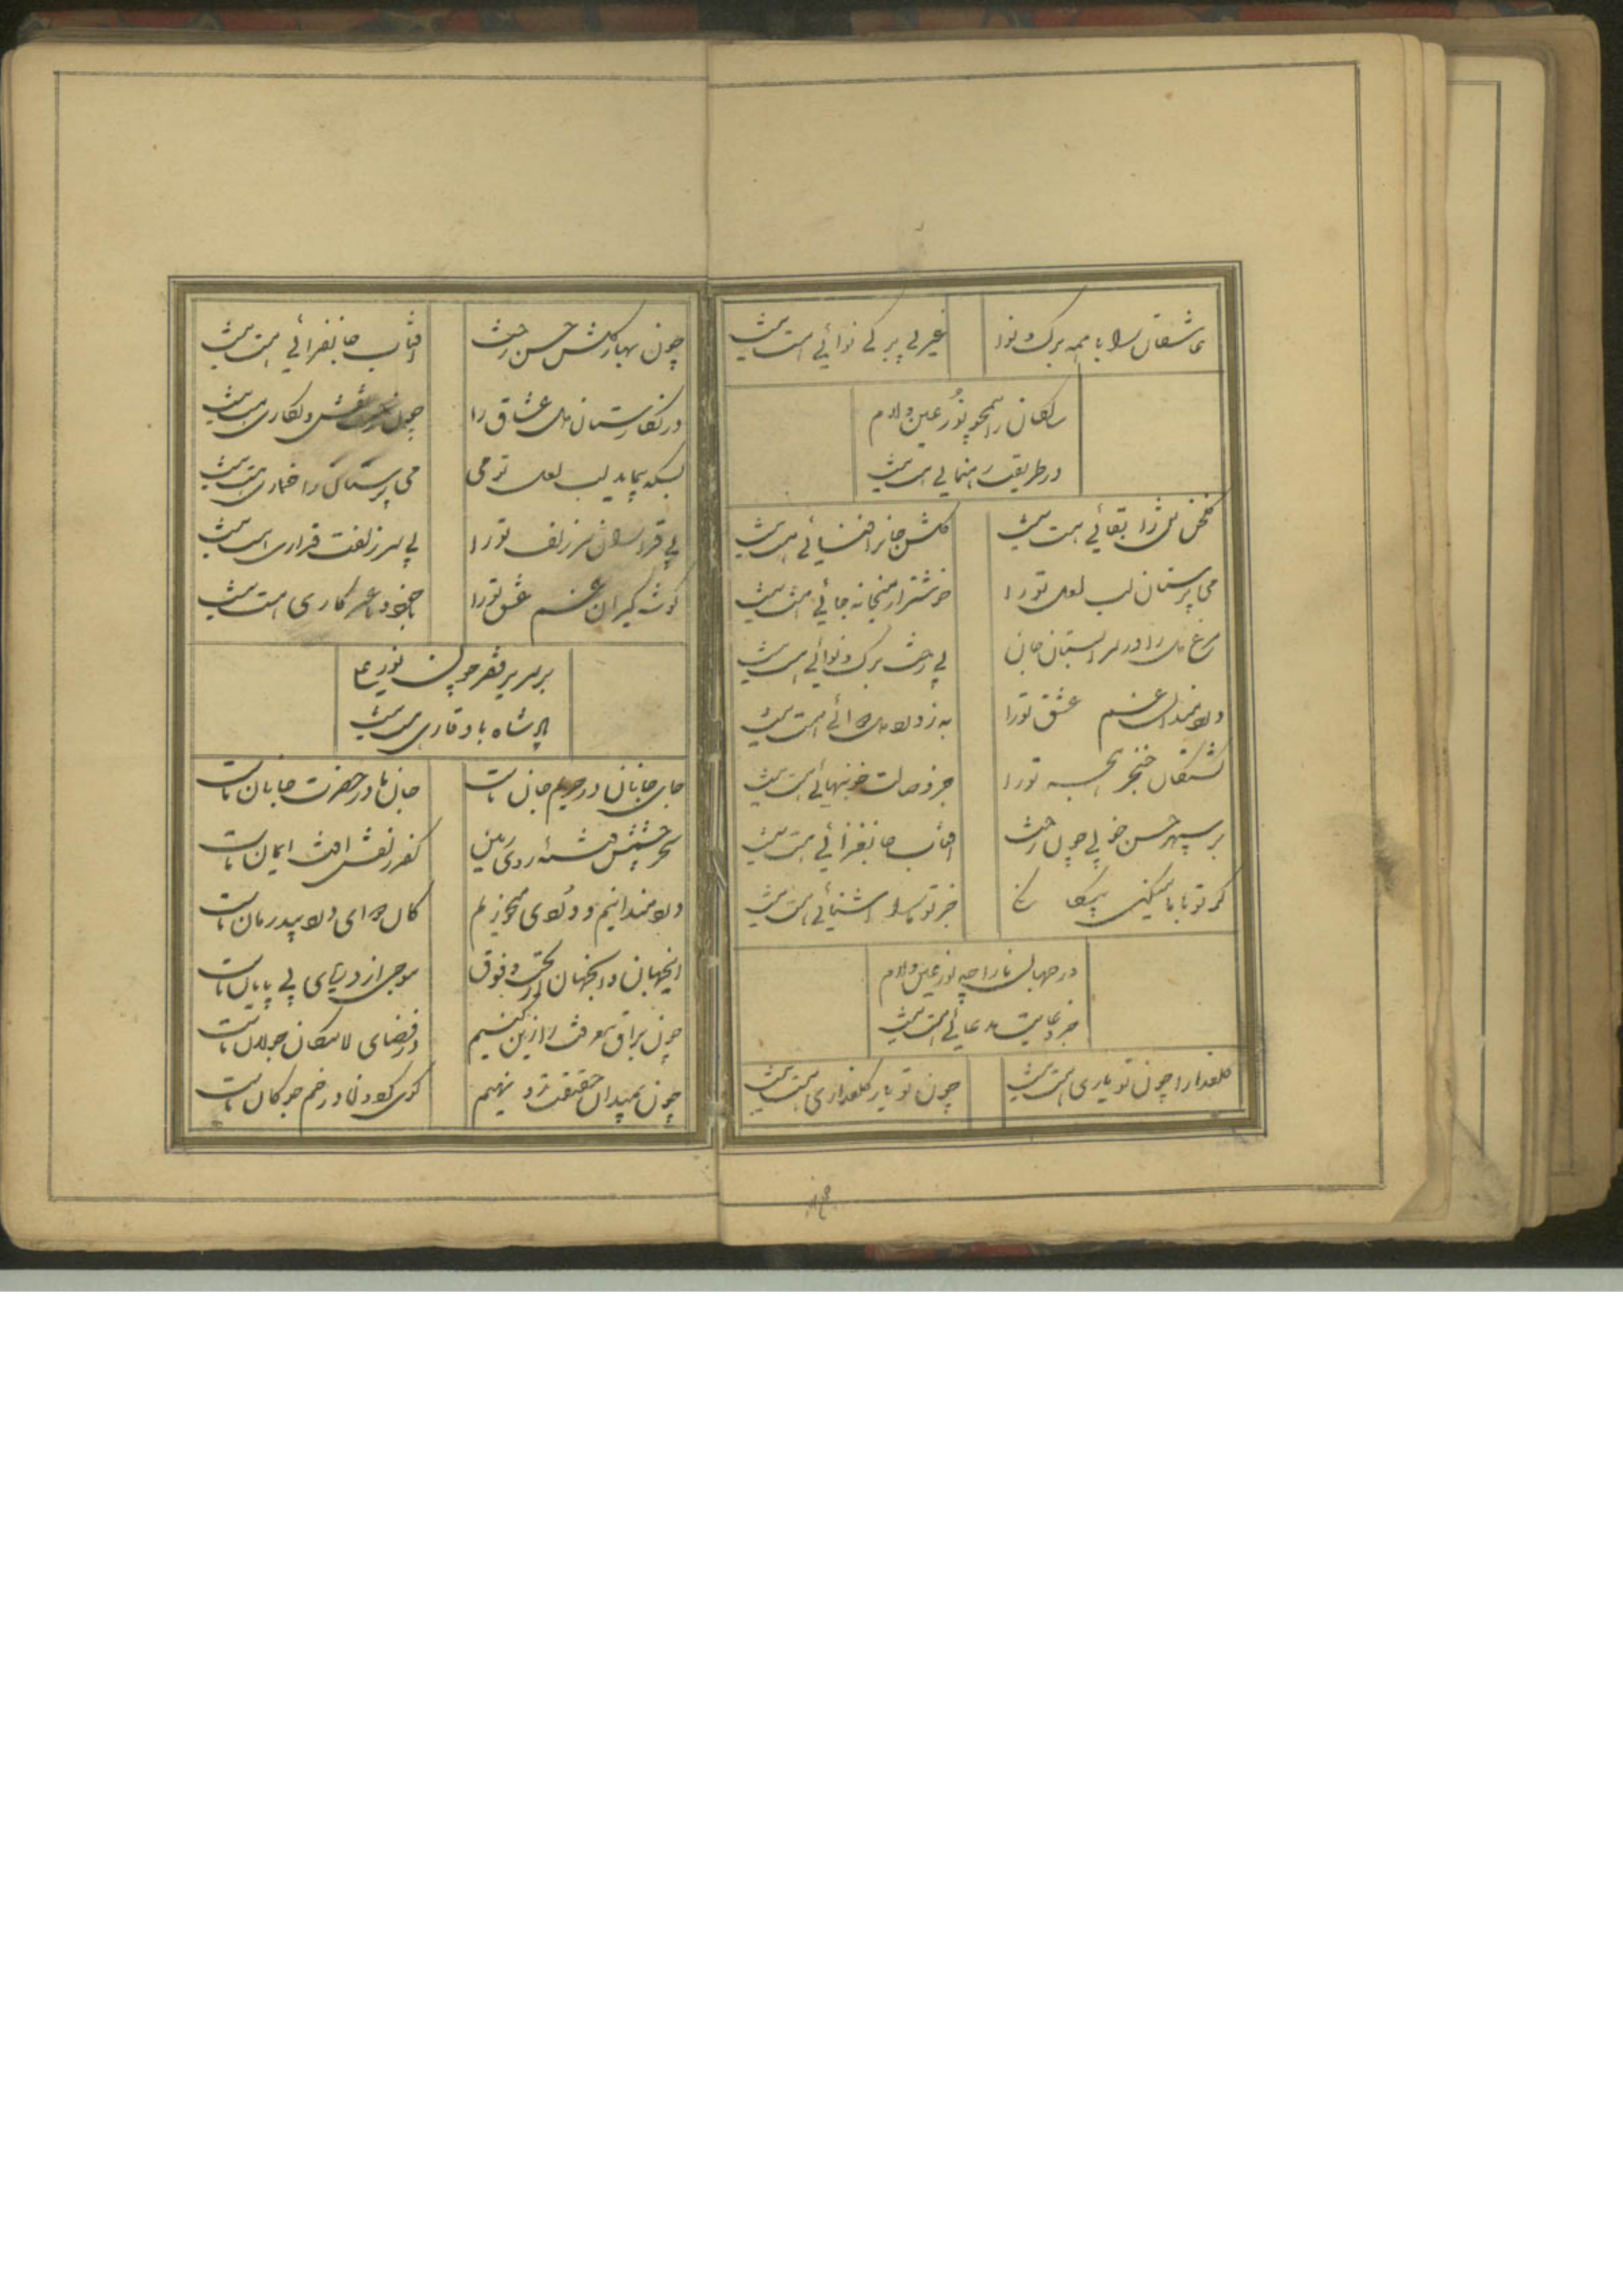 عاشقان را با همه برک و نوا
غیر بی برکی نوائی هست نیست
سالکان را همچو نور عین ولام
در طریقت رهنمائی هست نیست
کلخن را بقائی هست نیست
کلشن جانرا فنائی هست نیست
می پرستان لب لعل تو را
خوشتر از میخانه جائی هست نیست
مرغ دل را در سرابستان جان
بی رخت برک و نوائی هست نیست
دردمندان غم عشق تو را
به ز درد دل دوائی هست نیست
کشتکان خنجر تو را
جز وصالت خونبهائی هست نیست
بر سپهر حسن خوبی چون رخت
افتاب جانفزائی هست نیست
کر تو با ما میکنی
جز تو ما را اشنائی هست نیست
در جهان ما را چه نور عین ولام
جز دعایت مدعائی هست نیست
کلعذارا چون تو یاری هست نیست
چون تو یار کلعذاری هست نیست
چون بهار کلشن حسن رخت
افتاب جانفزائی هست نیست
در نکارستان دل عشاق را
چون نقش و نکاری هست نیست
بسکه پیماید لب لعل تو می
می پرستان را خماری هست نیست
بی قراران سر زلف تو را
بی سر زلفت قراری هست نیست
کوشه کیران غم عشق تو را
با خود و با غیر کاری هست نیست
بر سریر فقر چون نور
پادشاه با وقاری هست نیست
جای جانان در حریم جان ماست
جان ما در حضرت جانان ماست
سحر چشمش فتنه روی زمین
کفر زلفش افت ایمان ماست
دردمندانیم و دردی میخوریم
کان دوای درد بیدرمان ماست
اینجهان و انجهان و تحت و فوق
موجی از دریای بی پایان ماست
چون براق معرفت را زین کنیم
در فضای لامکان جولان ماست
چون بمیدان حقیقت رو نهیم
کوی کردون در خم چوکان ماست